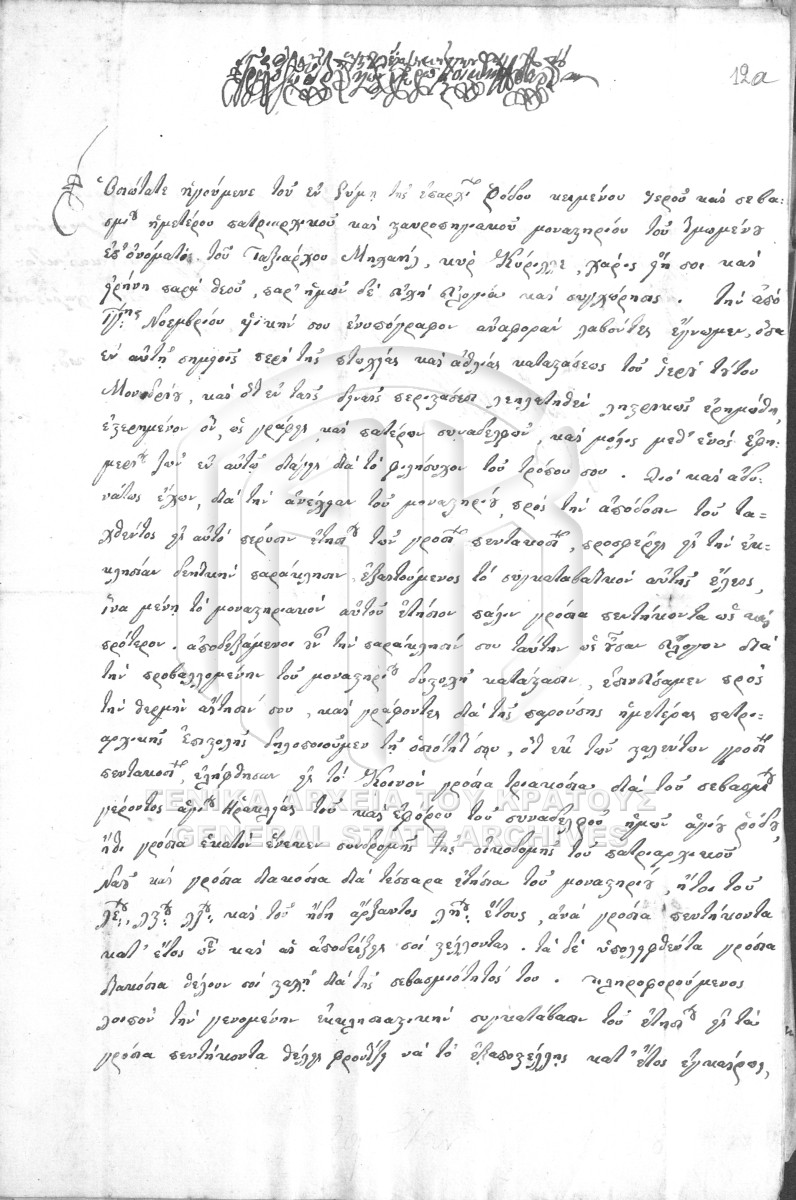 12a
Ὁσιώτατε ἡγούμενε τοῦ ἐν Σύμῃ τῆς ἐπαρχί Ῥόδου κειμένου ἱεροῦ καὶ σεβα-
σμί ἡμετέρου πατριαρχικοῦ καὶ σταυροπηγιακοῦ μοναστηρίου τοῦ τιμωμένου
ἐπ' ὀνόματος τοῦ Ταξιάρχου Μιχαήλ, κὺρ Κύριλλε, χάρις εἴη σοι καὶ
εἰρήνη παρὰ θεοῦ, παρ' ἡμῶν δὲ εὐχὴ εὐλογία καὶ συγχώρησις. Τὴν ἀπὸ
Νοεμβρίου σου ἐνυπόγραφον ἀναφορὰν λαβόντες ἔγνωμεν, ὅσα
ἐν αὐτῇ σημειοῖς περὶ τῆς πτωχείας καὶ ἀθλίας καταστάσεως τοῦ ἱεροῦ τούτου
Μοναστηρίου, καὶ ὅτι ἐν ταῖς δειναῖς περιστάσεσι λεηλατηθὲν ληστρικῶς ἐρημώθη,
ἐστερημένον ὄν, ὡς γράφεις, καὶ πατέρων συναδελφῶν, καὶ μόλις μεθ' ἑνὸς ἐφη-
μερί ζῶν ἐν αὐτῷ διάγεις διὰ τὸ φιλήσυχον τοῦ τρόπου σου. Διὸ καὶ ἀδυ-
νάτως ἔχων, διὰ τὴν ἀνέχειαν τοῦ μοναστηρίου, πρὸς τὴν ἀπόδοσιν τοῦ τα-
χθέντος εἰς αὐτὸ πέρυσιν ἐτησί τῶν γροσί πεντακοσί, προσφέρεις εἰς τὴν ἐκ-
κλησίαν δεητικὴν παράκλησιν ἐξαιτούμενος τὸ συγκαταβατικὸν αὐτῆς ἔλεος,
ἵνα μένῃ τὸ μοναστηριακὸν αὐτοῦ ἐτήσιον πάλιν γρόσια πεντήκοντα ὡς καὶ
πρότερον. ἀποδεξάμενοι οὖν τὴν παράκλησίν σου ταύτην ὡς οὖσαν εὔλογον διὰ
τὴν προβαλλομένην τοῦ μοναστηρί δύστολη κατάστασιν, ἐπενεύσαμεν πρὸς
τὴν θερμὴν αἴτησίν σου, καὶ γράφοντες διὰ τῆς παρούσης ἡμετέρας πατρι-
αρχικῆς ἐπιστολῆς δηλοποιοῦμεν τῇ ὁσιότητί σου, ὅτι ἐκ τῶν σταλέντων γροσί
πεντακοσί, ἐλήφθησαν εἰς τὸ Κοινὸν γρόσια τριακόσια διὰ τοῦ σεβασμί
γέροντος ἁγί Ἡρακλείας τοῦ καὶ ἐφόρου τοῦ συναδελφοῦ ἡμῶν ἁγίου Ῥόδου,
ἤδη γρόσια ἑκατὸν ἕνεκεν συνδρομῆς τῆς οἰκοδομῆς τοῦ πατριαρχικοῦ
Ναοῦ καὶ γρόσια διακόσια διὰ τέσσαρα ἐτήσια τοῦ μοναστηρίου, ἤτοι τοῦ
λε:, λς: λζ: καὶ τοῦ ἤδη ἄρξαντος λη: ἔτους, ἀνὰ γρόσια πεντήκοντα
κατ' ἔτος ὧν καὶ αἱ ἀποδείξεις σοὶ στέλλονται. τὰ δὲ ὑπολειφθέντα γρόσια
διακόσια θέλουν σοὶ σταλῇ διὰ τῆς σεβασμιότητός του. πληροφορούμενος
λοιπὸν τὴν γενομένην ἐκκλησιαστικὴν συγκατάβασιν τοῦ ἐτησί εἰς τὰ
γρόσια πεντήκοντα θέλεις φροντίζῃ νὰ τὸ ἐξαποστέλλῃς κατ' ἔτος ἐγκαίρως,
ΓΕΝΙΚΑ ΑΡΧΕΙΑ ΤΟΥ ΚΡΑΤΟΥΣ
GENERAL STATE ARCHIVES